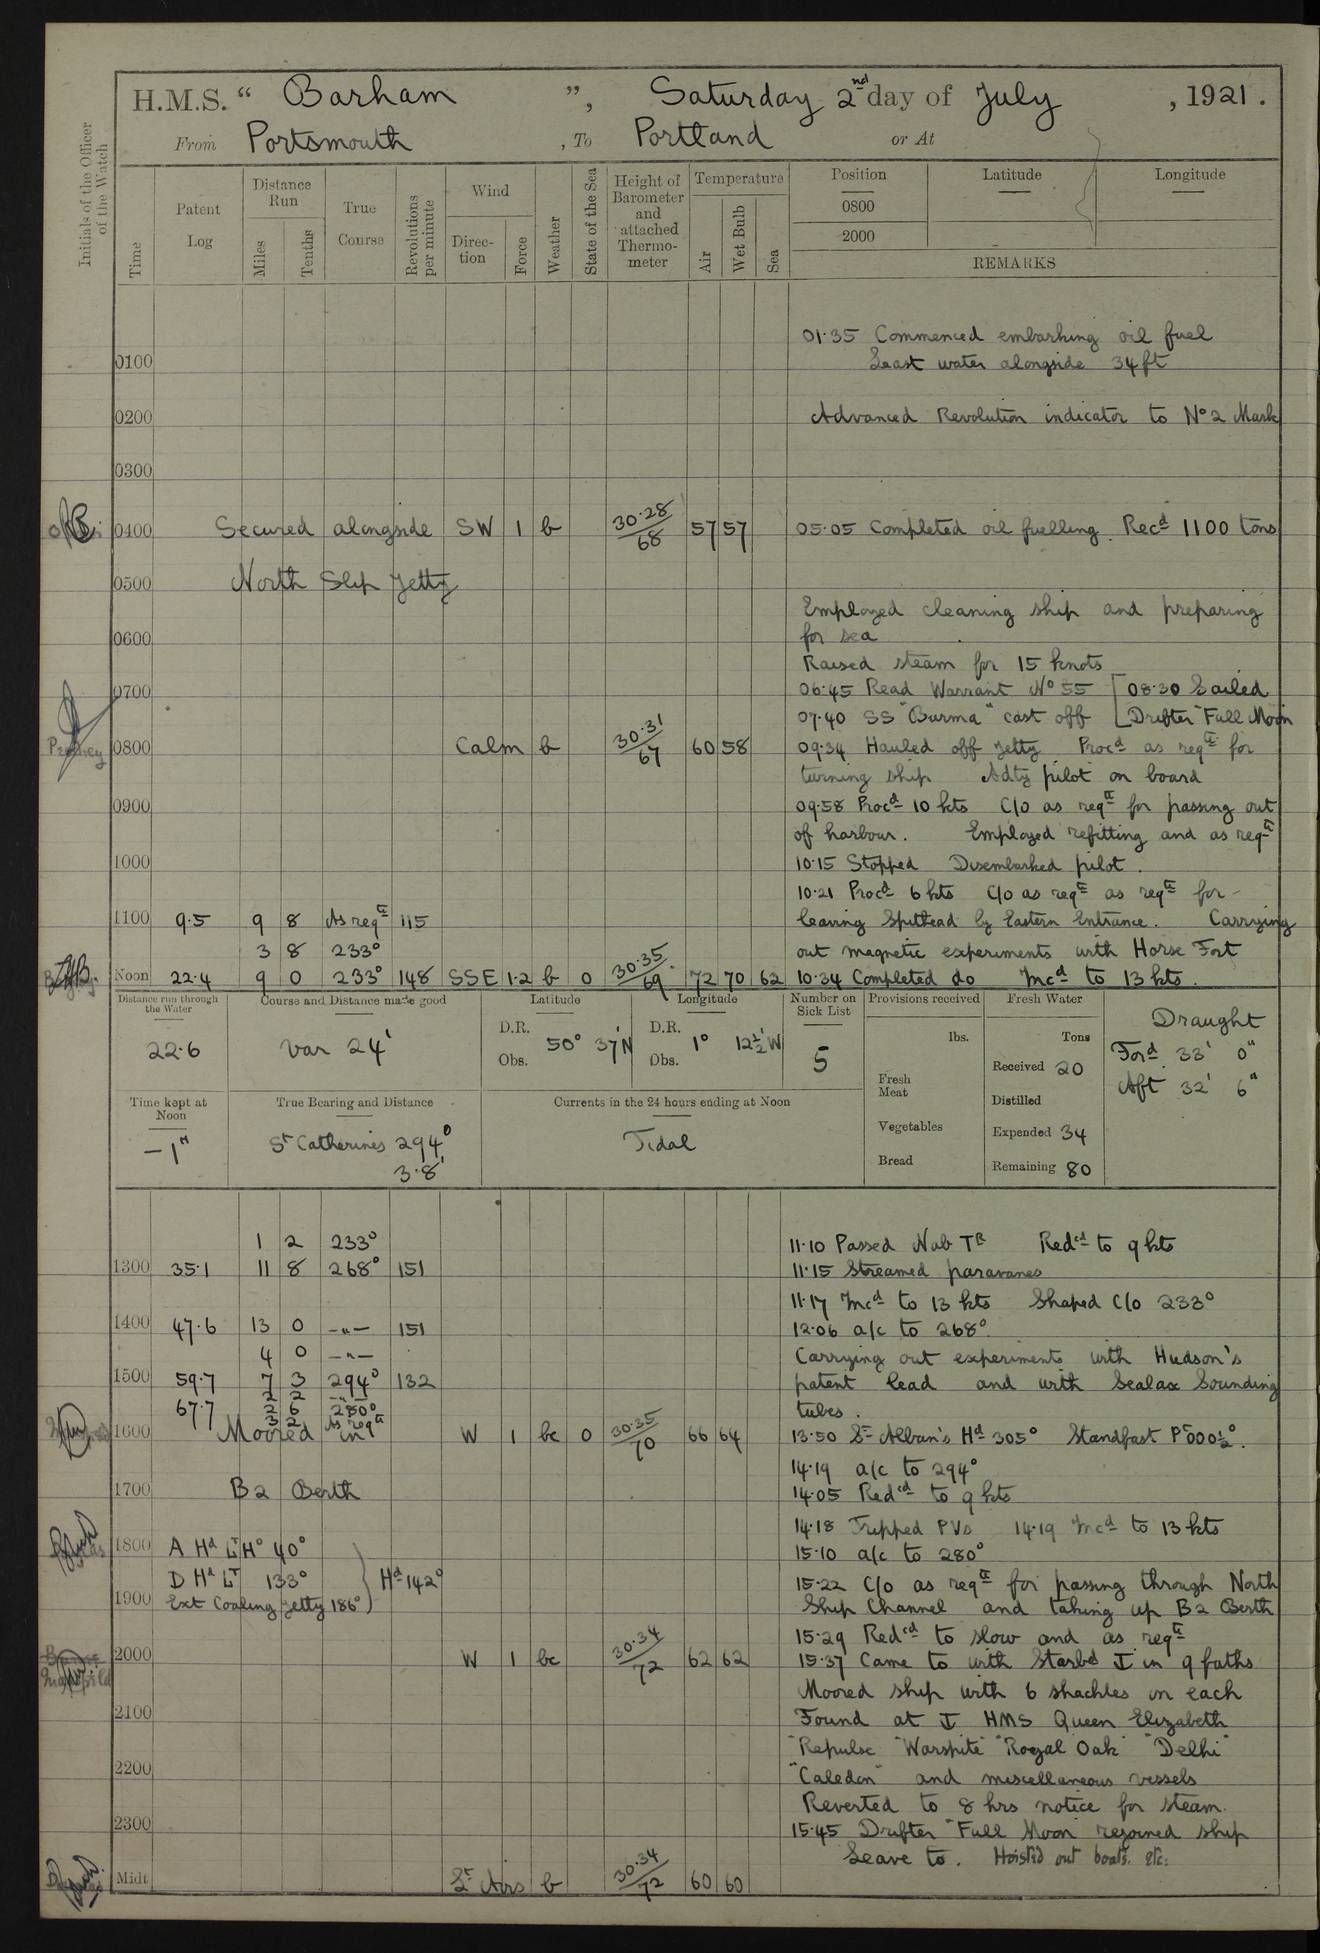 H.M.S. “ Barham ”, Saturday 2nd day of July , 1921.
From Portsmouth , To Portland or At
Initials of the Officer of the Watch
Time
Patent Log
Distance Run
Miles
Tenths
True Course
Revolutions per minute
Wind
Direc-tion
Force
Weather
State of the Sea
Height of Barometer and attached Thermo-meter
Temperature
Air
Wet Bulb
Sea
Position Latitude Longitude
0800
2000
REMARKS
01·35 Commenced embarking oil fuel
0100 Least water alongside 34 ft
0200 Advanced Revolution indicator to No 2 Mark
0300
0400 Secured alongside SW 1 b 30·28/68 57 57 05·05 Completed oil fuelling. Recd 1100 tons
0500 North Slip Jetty
Employed cleaning ship and preparing
0600 for sea
Raised steam for 15 knots
0700 06·45 Read Warrant No 55 [08·30 Sailed
07·40 SS "Burma" cast off Drifter "Full Moon
0800 Calm b 30·31/67 60 58 09·34 Hauled off jetty Procd as reqte for
turning ship Adty pilot on board
0900 09·58 Procd 10 kts C/o as reqte for passing out
of harbour. Employed refitting and as reqte
1000 10·15 Stopped Disembarked pilot.
10·21 Procd 6 kts C/o as reqte as reqte for
1100 9·5 9 8 As reqte 115 leaving Spithead by Eastern Entrance. Carrying
3 8 233° out magnetic experiments with Horse Fort
Noon 22·4 9 0 233° 148 SSE 1·2 b 0 30·35/69 72 70 62 10·34 Completed do Incd to 13 kts.
Distance run through the Water
22·6
Course and Distance made good
Var 24'
Latitude
D.R.
Obs.
50° 37' N
Longitude
D.R.
Obs.
1° 12½' W
Number on Sick List
5
Provisions received
lbs.
Fresh Meat
Vegetables
Bread
Fresh Water
Tons
Received 20
Distilled
Expended 34
Remaining 80
Draught
Ford 33' 0"
Aft 32' 6"
Time kept at Noon
-1h
True Bearing and Distance
St Catherines 294°
3·8'
Currents in the 24 hours ending at Noon
Tidal
1 2 233° 11·10 Passed Nab Tr Redcd to 9 kts
1300 35·1 11 8 268° 151 11·15 Streamed paravanes
11·17 Incd to 13 kts Shaped C/o 233°
1400 47·6 13 0 —"— 151 12·06 a/c to 268°
4 0 —"— Carrying out experiments with Hudson's
1500 59·7 7 3 294° 132 patent lead and with Sealax Sounding
2 2 —"—
67·7 2 6 280° tubes.
3 2 As reqte
1600 Moored in W 1 bc 0 30·35/70 66 64 13·50 St Alban's Hd 305° Standfast Pt 000½°.
14·19 a/c to 294°
1700 B2 Berth 14·05 Redcd to 9 kts
14·18 Tripped PVs 14·19 Incd to 13 kts
1800 A Hd Lt Ho 40° 15·10 a/c to 280°
D Hd Lt 133° } Hd 142° 15·22 C/o as reqte for passing through North
1900 Ext Coaling Jetty 186° Ship Channel and taking up B2 Berth
15·29 Redcd to slow and as reqte
2000 W 1 bc 30·34/72 62 62 15·37 Came to with Starbd ⚓ in 9 faths
Moored ship with 6 shackles on each
2100 Found at ⚓ HMS Queen Elizabeth
"Repulse" "Warspite" "Royal Oak" "Delhi"
2200 "Caledon" and miscellaneous vessels
Reverted to 8 hrs notice for steam.
2300 15·45 Drifter "Full Moon rejoined ship
Leave to. Hoisted out boats. etc.
Midt Lt Airs b 30·34/72 60 60